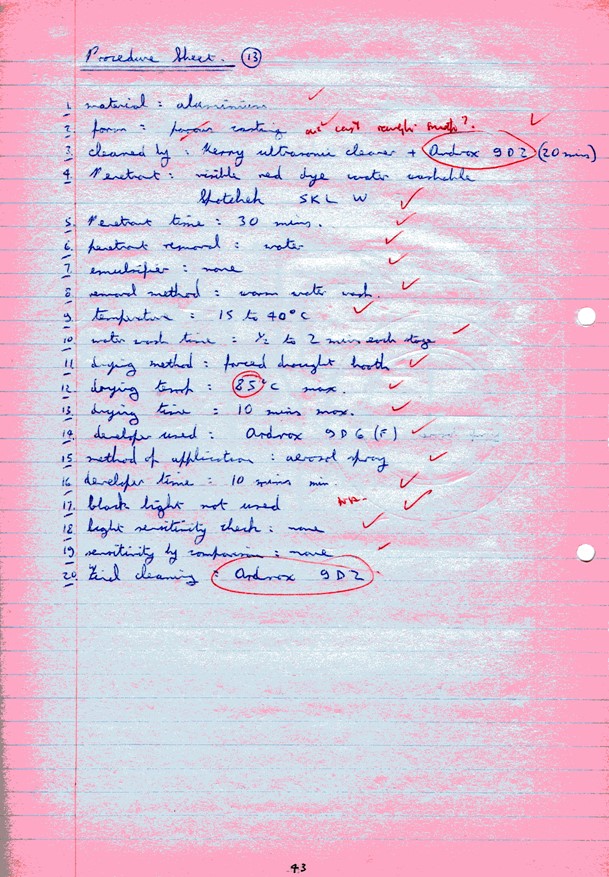 Procedure Sheet. 13
1. material : aluminium
2. form : porous casting as cast rough smooth?
3. cleaned by : Kerry ultrasonic cleaner + Ardrox 9D2 (20 mins)
4. Penetrant : visible red dye water washable
Spotchek SKL W
5. Penetrant time : 30 mins.
6. penetrant removal : water
7. emulsifier : none
8. removal method : warm water wash.
9. temperature : 15 to 40°C
10. water wash time : ½ to 2 mins each stage
11. drying method : forced draught booth
12. drying temp : 85°C max.
13. drying time : 10 mins max.
14. developer used : Ardrox 9D6 (F)
15. method of application : aerosol spray
16. developer time : 10 mins min.
17. black light not used NA-
18. light sensitivity check : none
19. sensitivity by comparison : none
20. Final cleaning : Ardrox 9D2
43